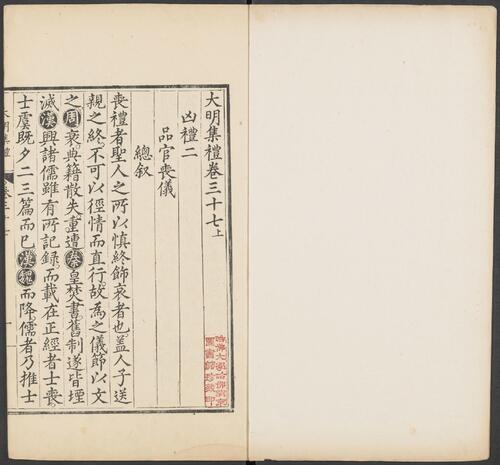 大明集禮卷三十七上
凶禮二
品官喪儀
總叙
喪禮者聖人之所以慎終飾哀者也盖人子送
親之終不可以徑情而直行故為之儀節以文
之周衰典籍散失重遭秦皇焚書舊制遂皆堙
滅漢興諸儒雖有所記録而載在正經者士喪
士虞既夕二三篇而已漢魏而降儒者乃推士